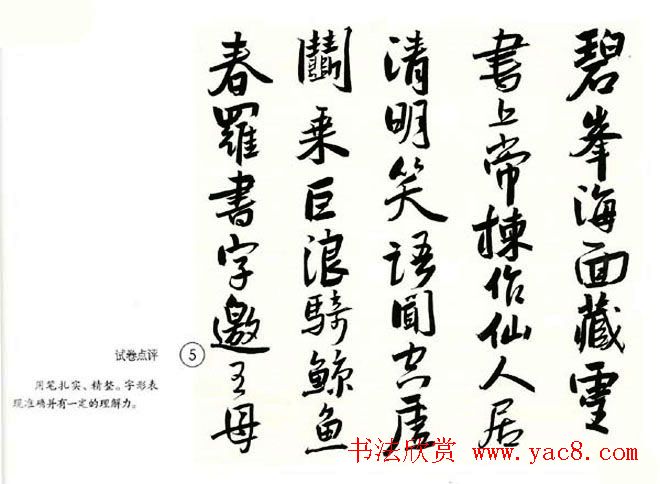 碧峯海面藏靈
書上帝揀作仙人居
清明笑語聞空虛
鬭乘巨浪騎鯨魚
春羅書字邀王母
试卷点评 ⑤
用笔扎实、精整。字形表
现准确并有一定的理解力。
书法欣赏 www.yac8.com